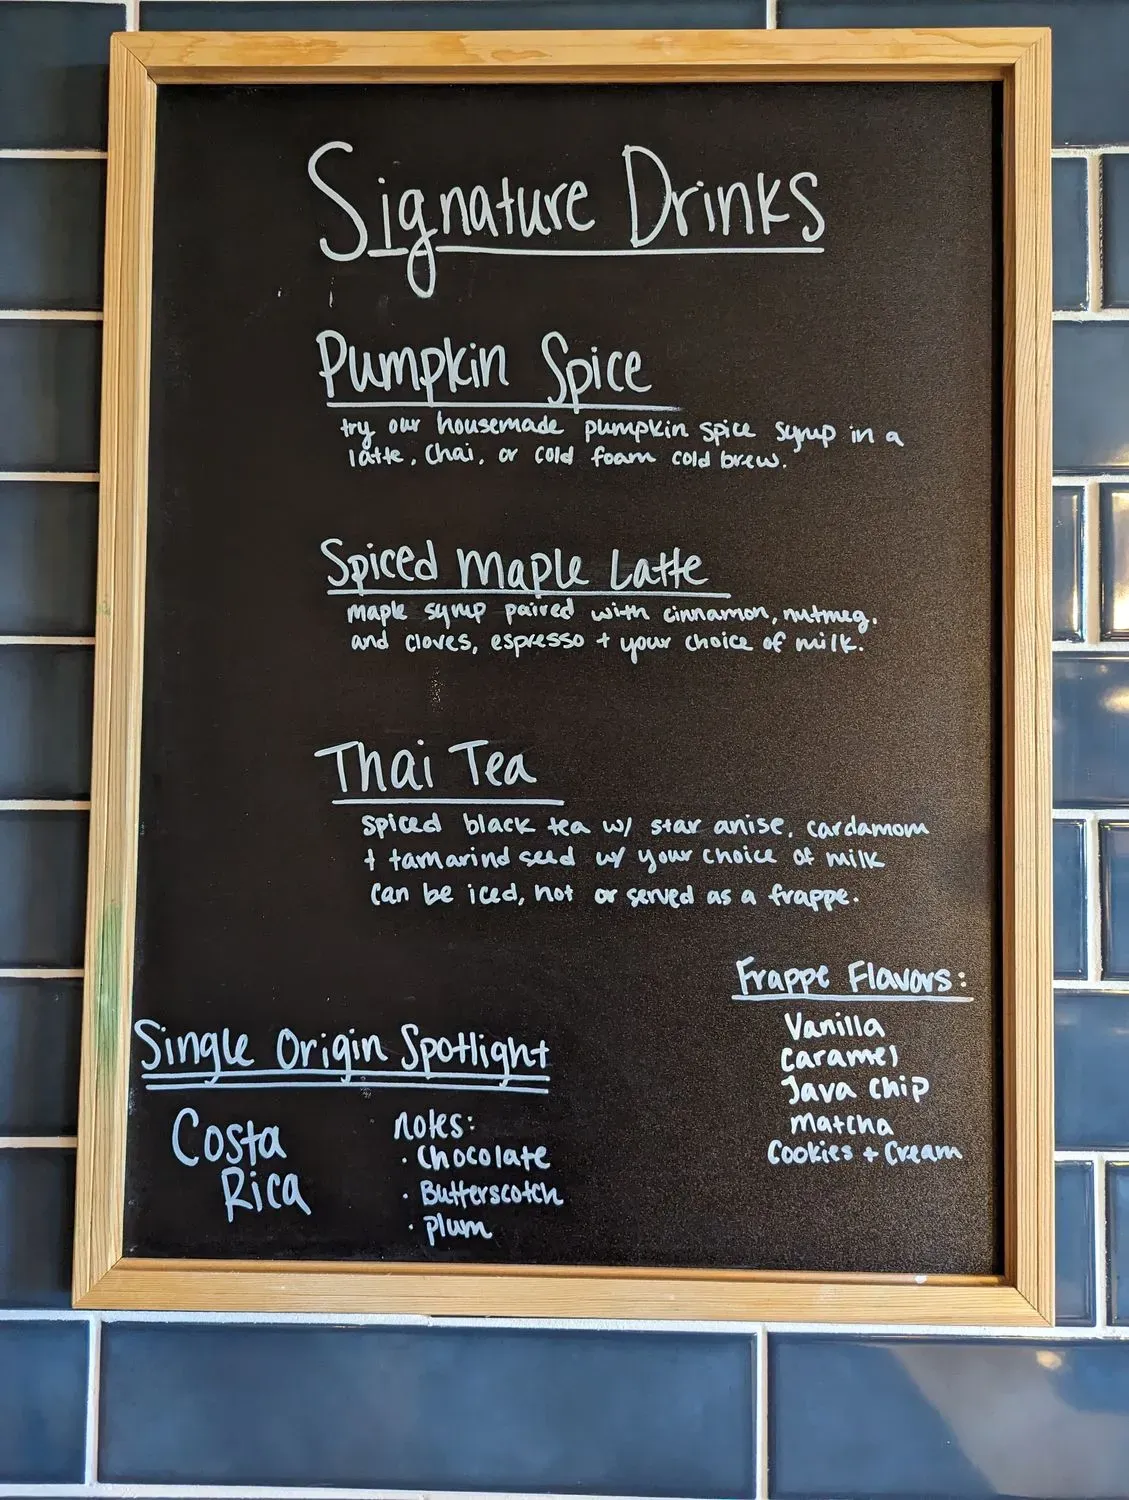 Signature Drinks
Pumpkin Spice
try our housemade pumpkin spice syrup in a
latte, chai, or cold foam cold brew.
Spiced Maple Latte
maple syrup paired with cinnamon, nutmeg,
and cloves, espresso + your choice of milk.
Thai Tea
spiced black tea w/ star anise, cardamom
+ tamarind seed w/ your choice of milk
can be iced, hot or served as a frappe.
Frappe Flavors:
Vanilla
Caramel
Java chip
Matcha
Cookies + Cream
Single Origin Spotlight
Costa
Rica
notes:
· Chocolate
· Butterscotch
· plum